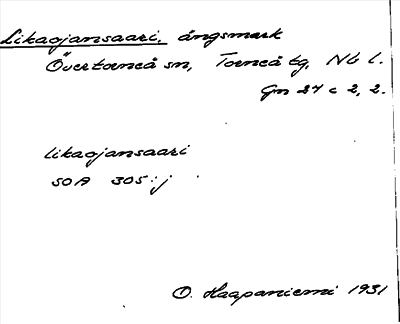 Likaojansaari, ängsmark
Övertorneå sn, Torneå tg, Nb l.
Gm 27 c 2, 2.
likaojansaari
SOA 305:j
O. Haapaniemi 1931